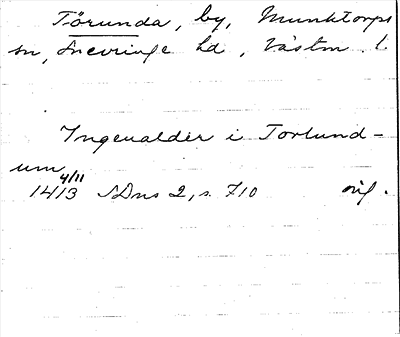 Törunda, by, Munktorps
sn, Snevringe hd, Västm. l.
Ingeualder i Torlund-
um
14 4/11 13 SDns 2, s. 710 orig.